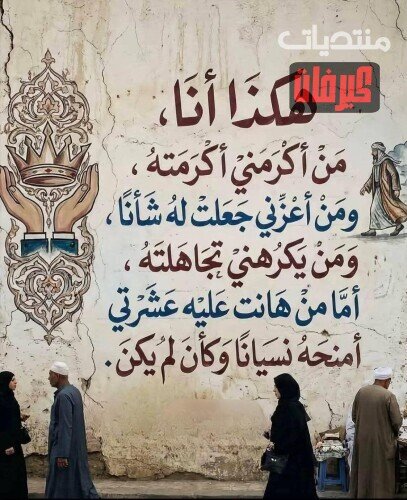 منتديات
كيرفان
هكذا أنا،
مَنْ أكرَمَنيْ أكْرَمَته،
ومَنْ أعْزَّني جَعَلت لهُ شَأنا،
وَمَنْ يَكرَهنيْ تجاهَلتَهُ،
أمَّا مِنْ هَانت عَليْه عَشرَتي
أمنحَهُ نسيَانًا وَكأن لمْ يكنَ.